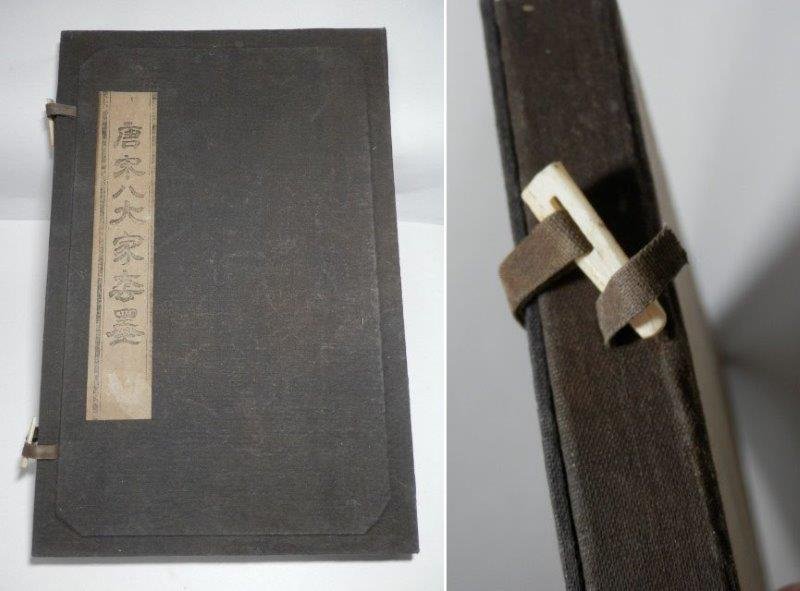 唐宋八大家套墨